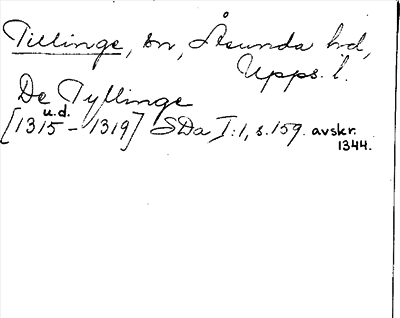 Tillinge, sn, Åsunda hd,
Upps. l.
De Tyllinge
u.d.
[1315 - 1319] SDa I:1, s. 159. avskr.
1344.